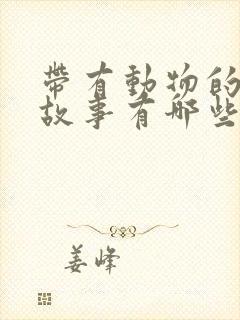 帶有動物的
故事有哪些
姜峰